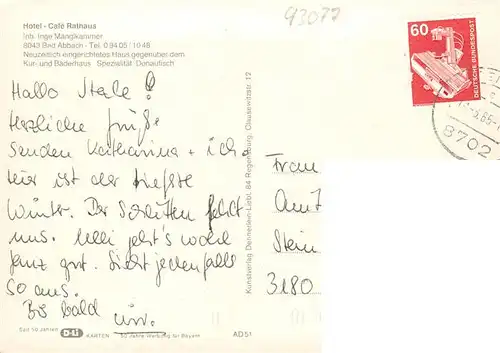 Hotel - Café Rathaus
Inh. Inge Mangkammer
8043 Bad Abbach - Tel. 0 94 05 / 10 48
Neuzeitlich eingerichtetes Haus gegenüber dem
Kur- und Bäderhaus Spezialität: Donaufisch
93077
60
DEUTSCHE BUNDESPOST
8702
Hallo
Herzliche Grüße
senden Katharina + ich.
Hier ist der tiefste
Winter. Der Schlitten fehlt
uns. Uli geht's wohl
ganz gut. Sieht jedenfalls
so aus.
Bis bald
Frau
Amt
Stein
3180
Kunstverlag Dennerlein-Liebl, 84 Regensburg, Clausewitzstr. 12
Seit 50 Jahren D-LI KARTEN 50 Jahre Werbung für Bayern
AD 51